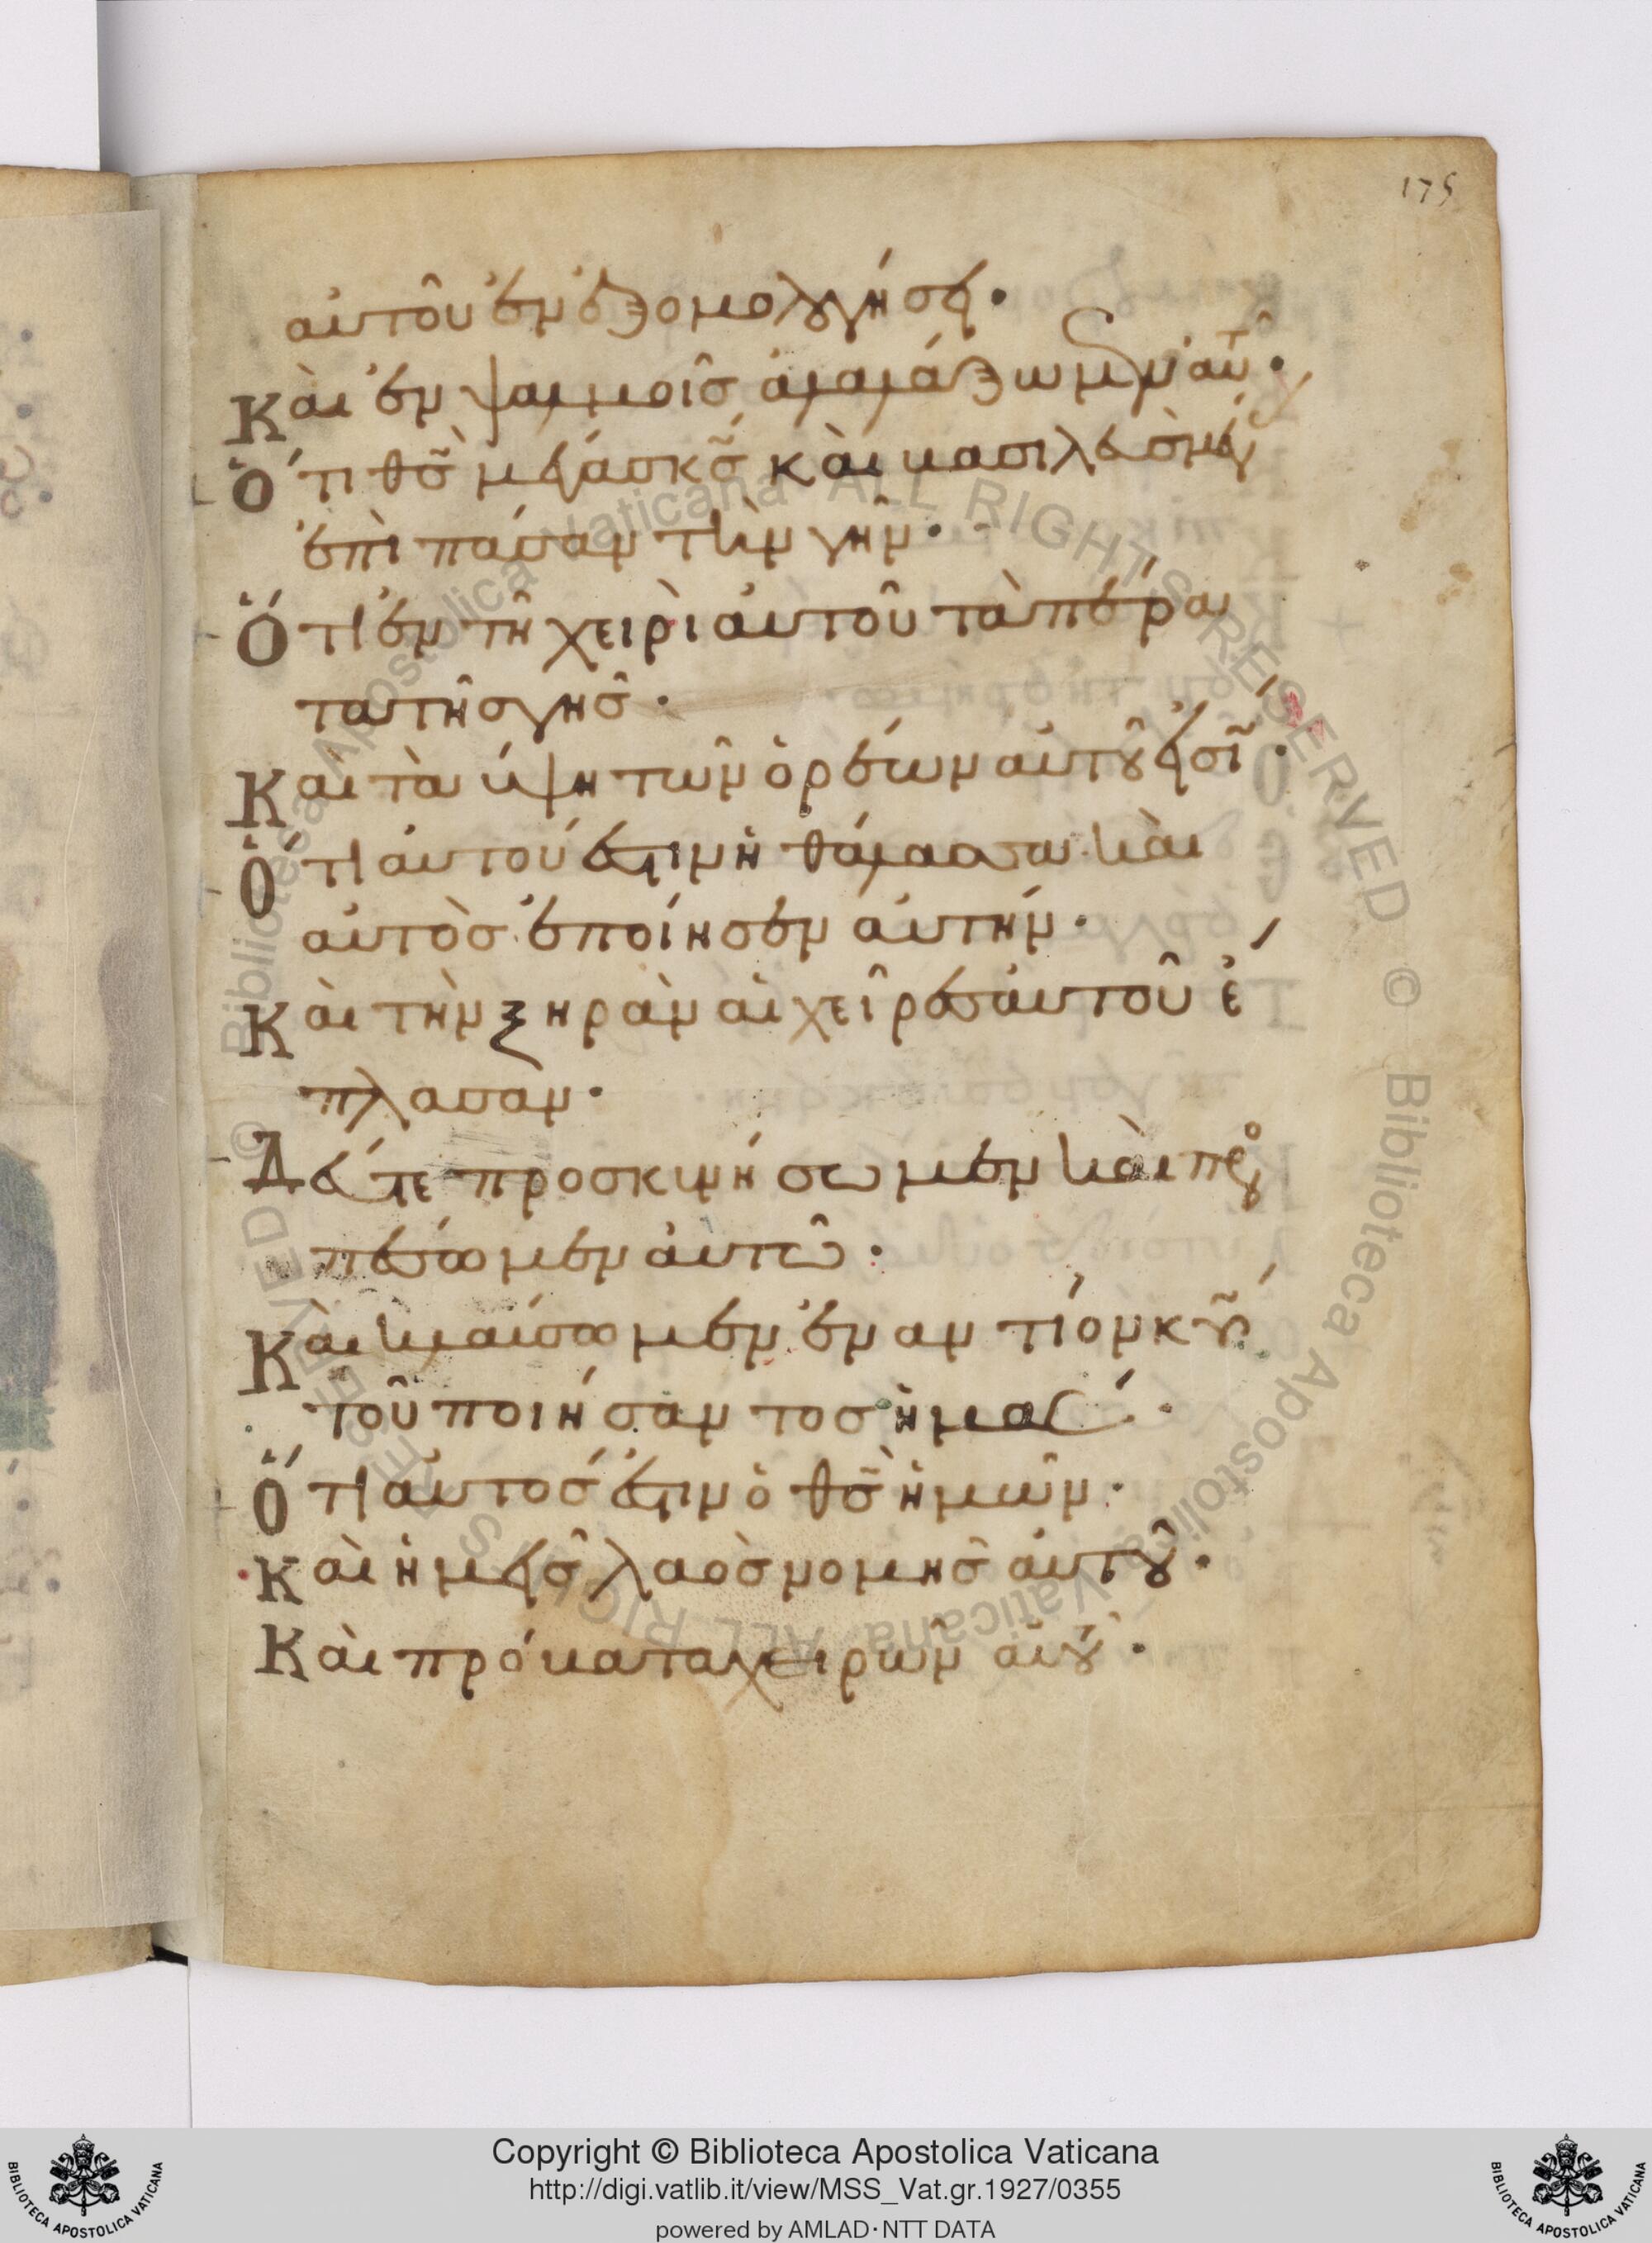 175
αὐτοῦ ἐν ἐξομολογήσει·
Καὶ ἐν ψαλμοῖς ἀλαλάξωμεν αὐτῶ·
Ὅτι θς μέγασ κς καὶ βασιλεὺσ μέγ
ἐπὶ πᾶσαν τὴν γῆν·
Ὅτι ἐν τῆ χειρὶ αὐτοῦ τὰ πέρα
τα τῆσ γῆσ·
Καὶ τὰ ὕψη τῶν ὀρέων αὐτοῦ εἰσι·
Ὅτι αὐτοῦ ἐστιν ἡ θάλασσα καὶ
αὐτὸσ ἐποίησεν αὐτήν·
Καὶ τὴν ξηρὰν αἱ χεῖρεσ αὐτοῦ ἔ
πλασαν·
Δεῦτε προσκυνήσωμεν καὶ προσ
πέσωμεν αὐτῶ·
Καὶ κλαύσωμεν ἐναντίον κυ
τοῦ ποιήσαντοσ ἡμᾶσ·
Ὅτι αὐτόσ ἐστιν ὁ θς ἡμῶν·
Καὶ ἡμεῖσ λαὸσ νομῆσ αὐτοῦ·
Καὶ πρόβατα χειρῶν αὐτοῦ·
Copyright © Biblioteca Apostolica Vaticana
http://digi.vatlib.it/view/MSS_Vat.gr.1927/0355
powered by AMLAD·NTT DATA
BIBLIOTECA APOSTOLICA VATICANA
BIBLIOTECA APOSTOLICA VATICANA
© Biblioteca Apostolica Vaticana ALL RIGHTS RESERVED
© Biblioteca Apostolica Vaticana ALL RIGHTS RESERVED